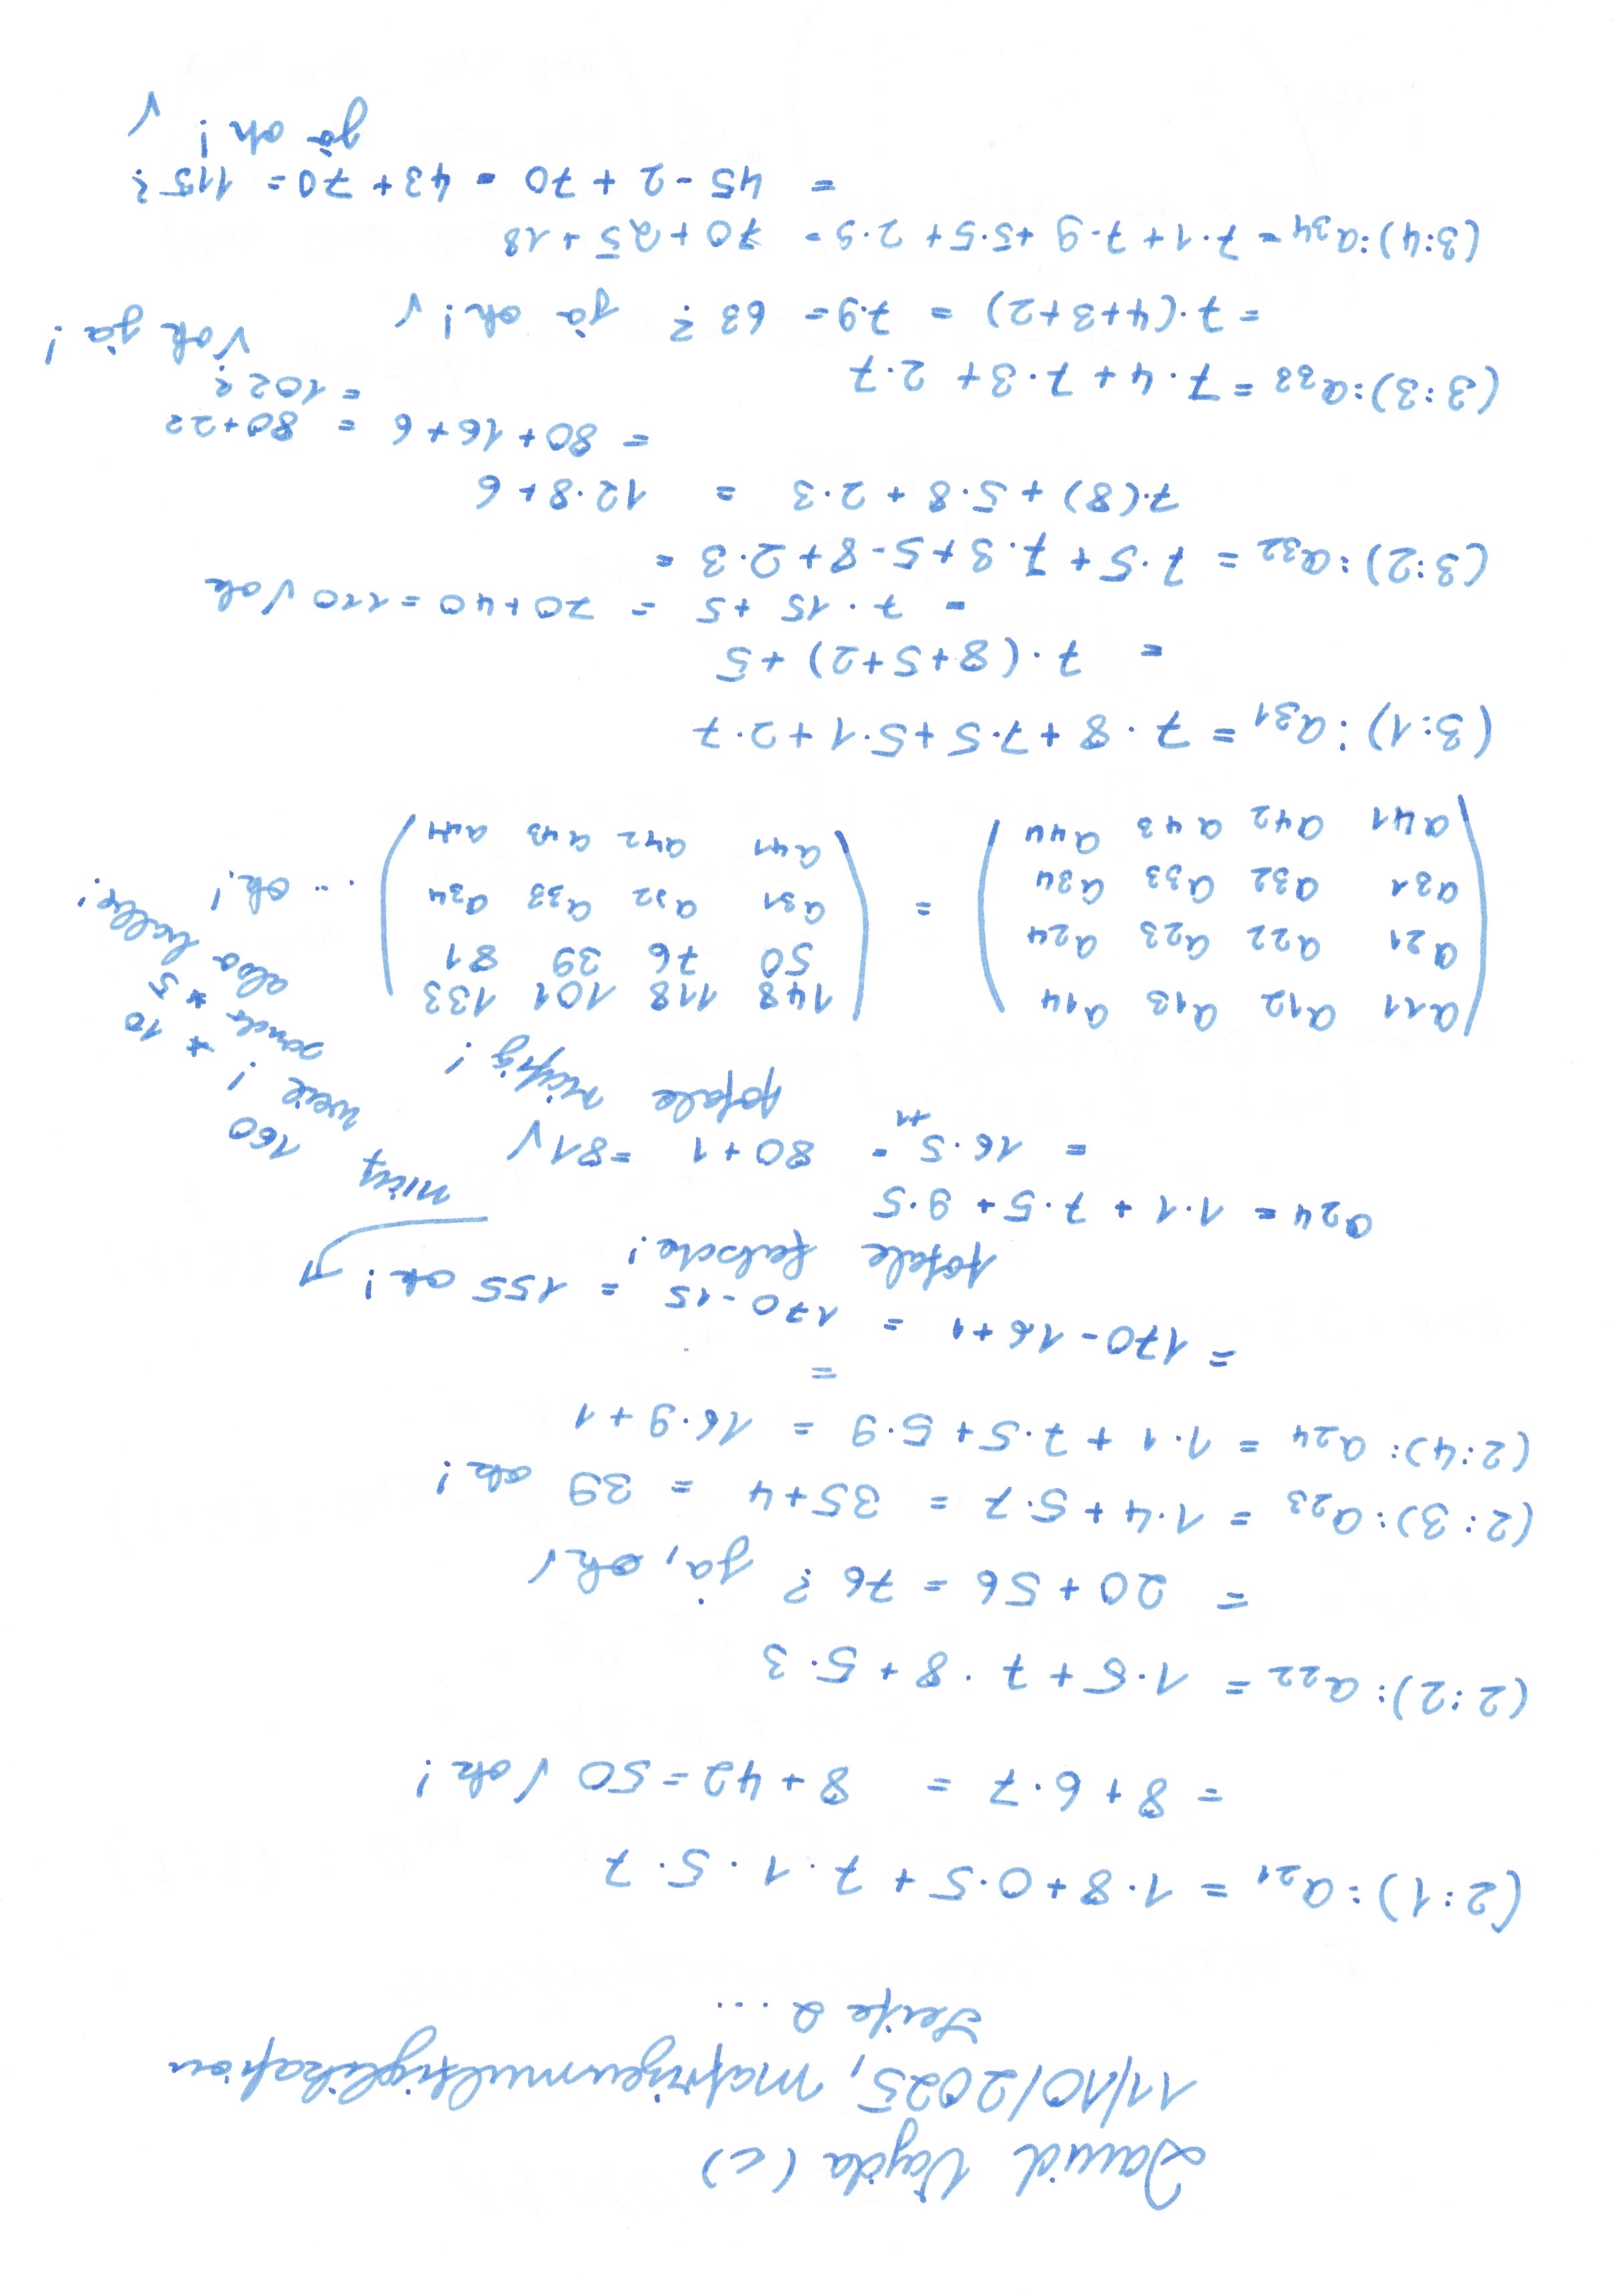 David Vajda (c)
11/10/2025, Matrizenmultiplikation
Seite 2 ...
(2:1): a21 = 1·8+0·5 + 7·1·5·7
= 8+6·7 = 8+42=50 √ ok!
(2:2): a22 = 1·5+7·8+5·3
= 20+56 = 76? ja, ok √
(2:3): a23 = 1·4+5·7 = 35+4 = 39 ok!
(2:4): a24 = 1·1+7·5+5·9 = 16·9+1
=
= 170-16+1 = 170-15 = 155 ok!
totale falsche!
a24 = 1·1+7·5+9·5
= 16·5+1 = 80+1 = 81√
totale richtig!
nicht 160
weil! * 10
sonst * 5
also halbe!
(a11 a12 a13 a14) (148 118 101 133)
(a21 a22 a23 a24) (50 76 39 81)
(a31 a32 a33 a34) = (a31 a32 a33 a34) ... ok!
(a41 a42 a43 a44) (a41 a42 a43 a44)
(3:1): a31 = 7·8+7·5+5·1+2·7
= 7·(8+5+2)+5
= 7·15+5 = 70+40=110 √ ok
(3:2): a32 = 7·5+7·3+5·8+2·3 =
7·(8)+5·8+2·3 = 12·8+6
= 80+16+6 = 80+22
= 102?
√ ok ja!
(3:3): a33 = 7·4+7·3+2·7
= 7·(4+3+2) = 7·9 = 63? ja ok! √
(3:4): a34 = 7·1+7·9+5·5+2·9 = 70+25+18
= 45-2+70 = 43+70 = 113?
ja ok! √